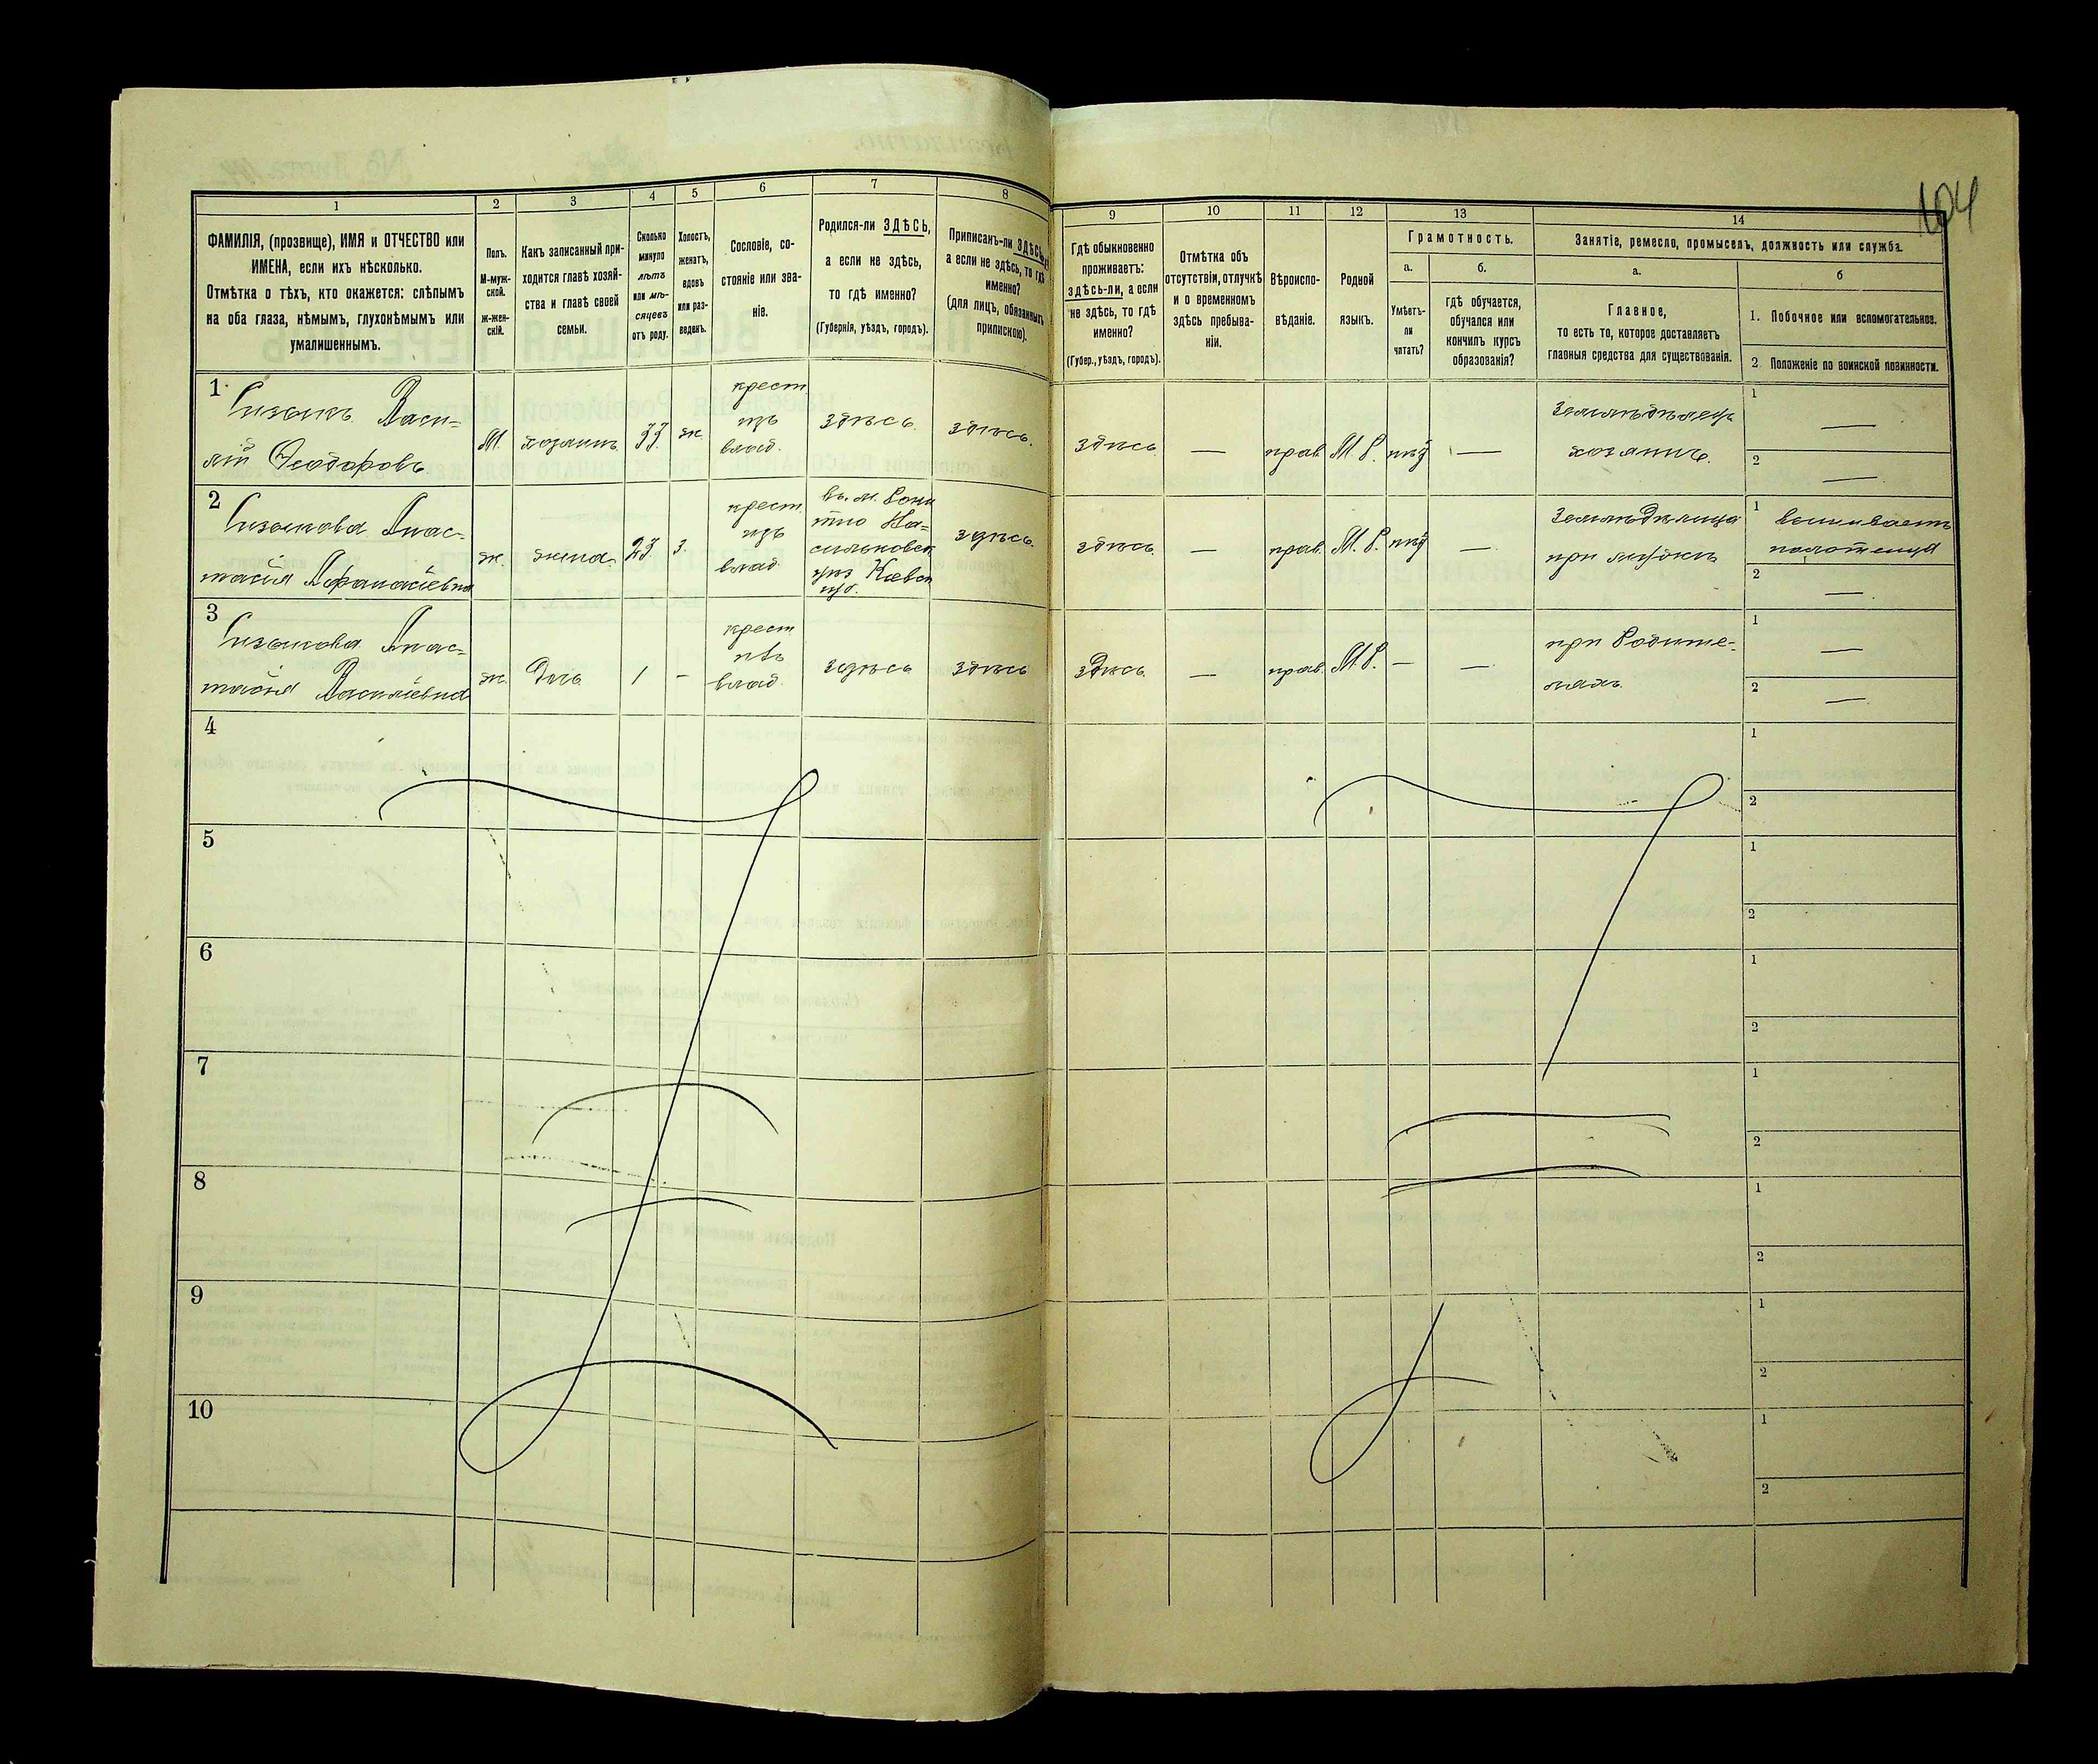 104
1 2 3 4 5 6 7 8 9 10 11 12 13 14
ФАМИЛІЯ, (прозвище), ИМЯ и ОТЧЕСТВО или
ИМЕНА, если ихъ нѣсколько.
Отмѣтка о тѣхъ, кто окажется: слѣпымъ
на оба глаза, нѣмымъ, глухонѣмымъ или
умалишеннымъ.
Полъ.
М-муж-
ской.
ж-жен-
скій.
Какъ записанный при-
ходится главѣ хозяй-
ства и главѣ своей
семьи.
Сколько
минуло
лѣтъ
или мѣ-
сяцевъ
отъ роду.
Холостъ,
женатъ,
вдовъ
или раз-
веденъ.
Сословіе, со-
стояніе или зва-
ніе.
Родился-ли ЗДѢСЬ,
а если не здѣсь,
то гдѣ именно?
(Губернія, уѣздъ, городъ).
Приписанъ-ли ЗДѢСЬ,
а если не здѣсь, то гдѣ
именно?
(для лицъ, обязанныхъ
припискою).
Гдѣ обыкновенно
проживаетъ:
здѣсь-ли, а если
не здѣсь, то гдѣ
именно?
(Губер., уѣздъ, городъ).
Отмѣтка объ
отсутствіи, отлучкѣ
и о временномъ
здѣсь пребыва-
ніи.
Вѣроиспо-
вѣданіе.
Родной
языкъ.
Грамотность.
а.
Умѣетъ-
ли
читать?
б.
гдѣ обучается,
обучался или
кончилъ курсъ
образованія?
Занятіе, ремесло, промыселъ, должность или служба.
а.
Главное,
то есть то, которое доставляетъ
главныя средства для существованія.
б
1. Побочное или вспомогательное.
2. Положеніе по воинской повинности.
1
Васи-
лій Феодоровъ
М.
хозяинъ
33
ж.
крест
изъ
влад.
здѣсь.
здѣсь.
здѣсь
—
прав.
М. Р.
нѣт
—
земледѣлецъ
хозяинъ.
1 —
2 —
2
Анас-
тасія Афанасіевна
ж.
жена
23
з.
крест
изъ
влад.
въ м.
Ва-
сильковск
уѣз Кіевск
губ.
здѣсь.
здѣсь.
—
прав.
М. Р.
нѣт
—
земледѣлица
при мужѣ
1 вышиваетъ
полотенца
2 —
3
Анас-
тасія Василіевна
ж.
дочь
1
—
крест
изъ
влад.
здѣсь
здѣсь
здѣсь.
—
прав.
М. Р.
—
—
при родите-
ляхъ.
1 —
2 —
4
1
2
5
1
2
6
1
2
7
1
2
8
1
2
9
1
2
10
1
2